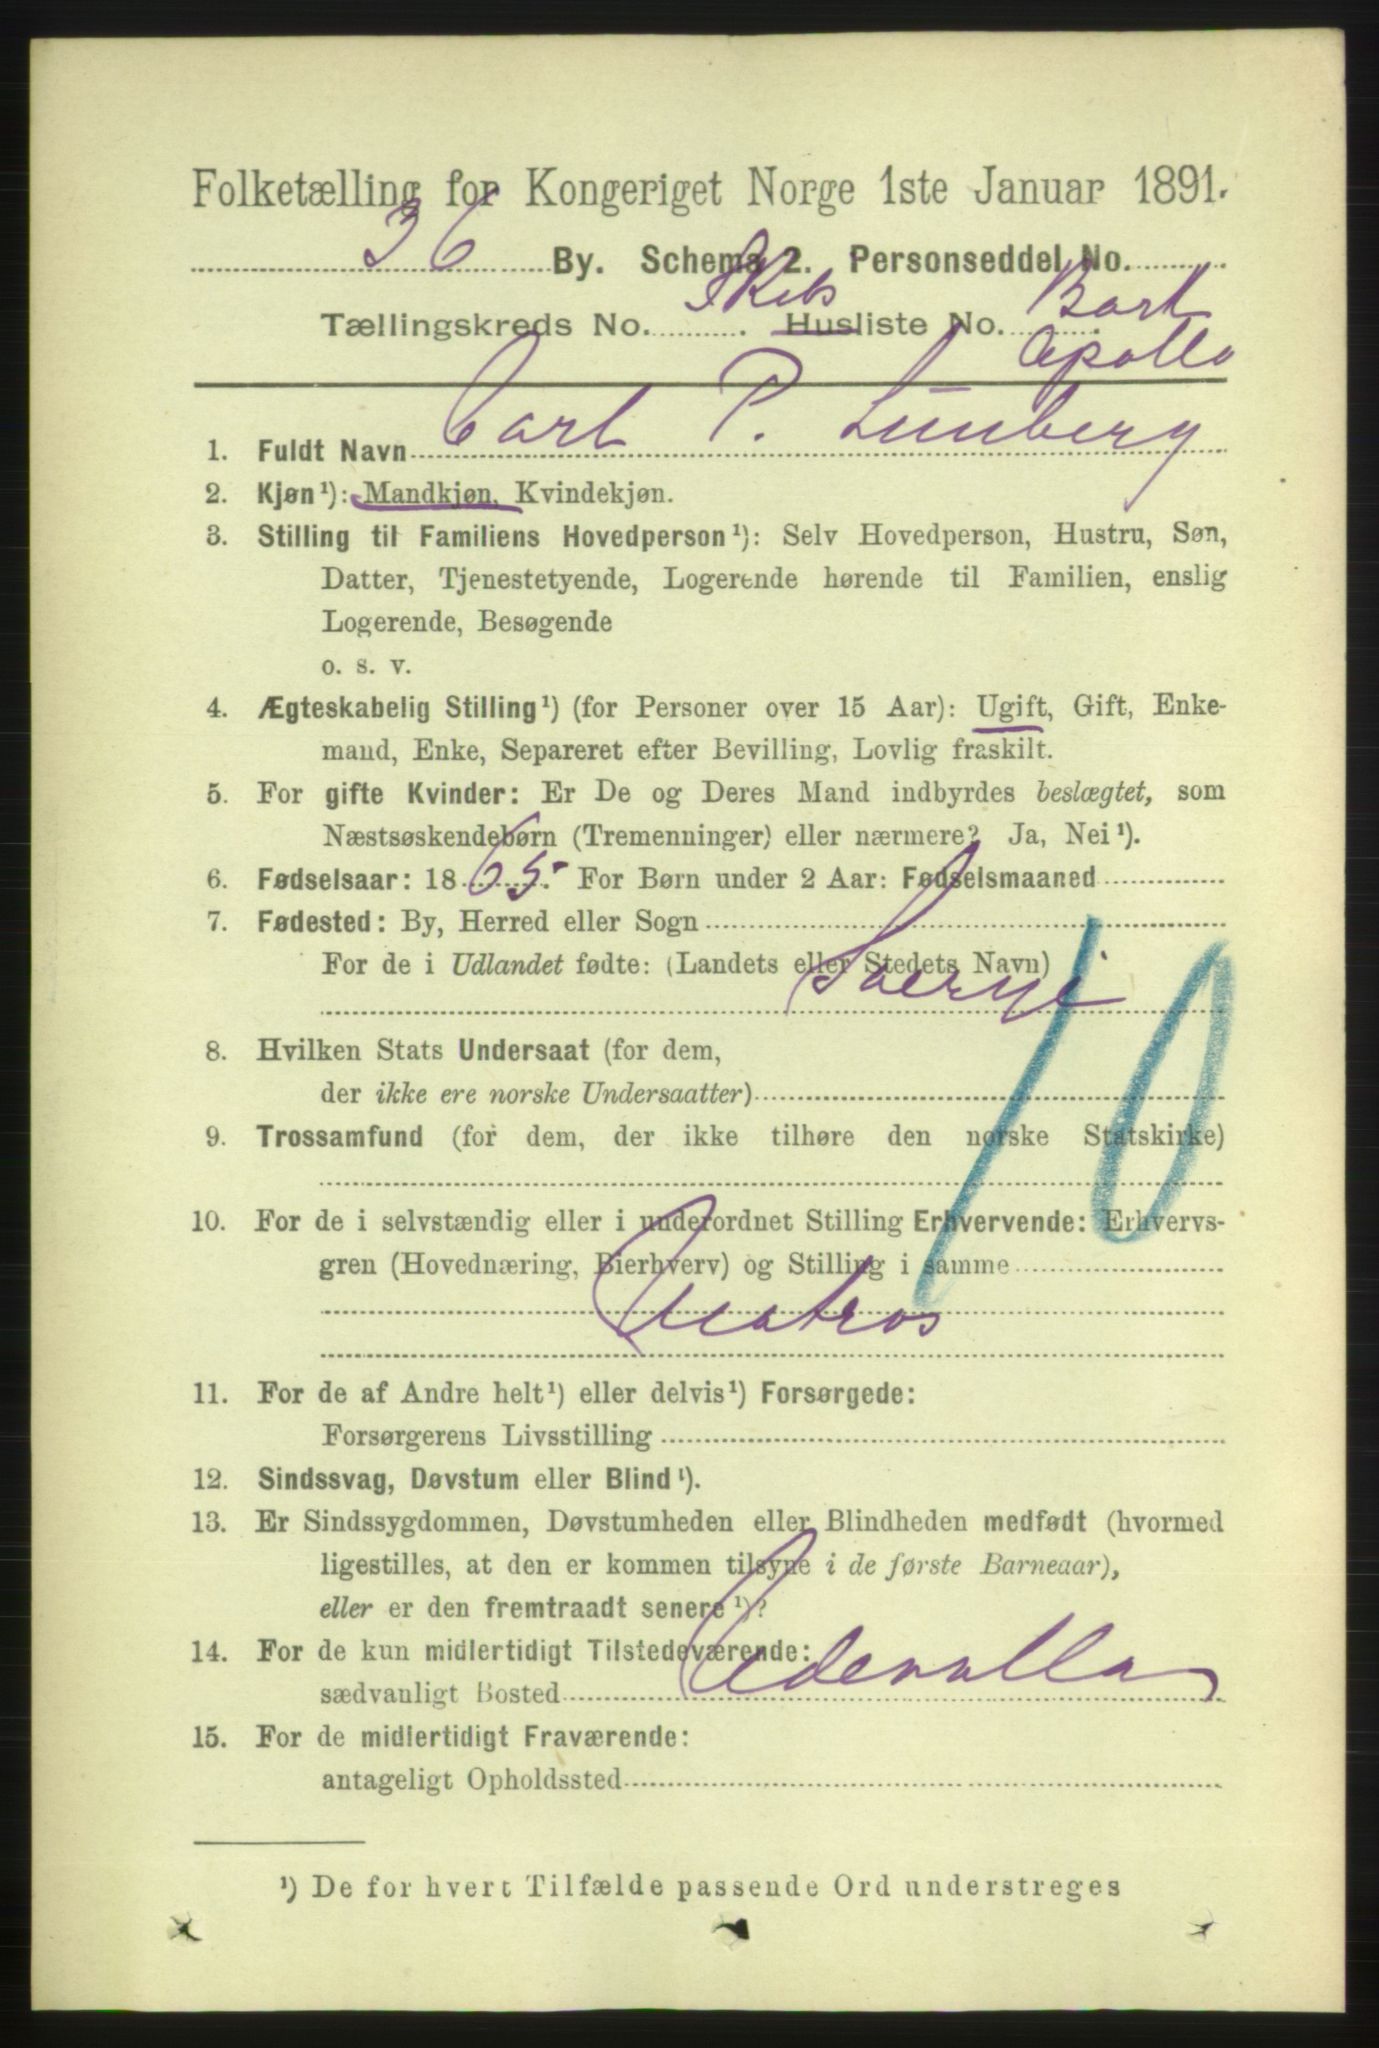 Folketælling for Kongeriget Norge 1ste Januar 1891.
36 By. Schema 2. Personseddel No.
Tællingskreds No. . Skibs Husliste No. . Bark
Apollo
1. Fuldt Navn Carl P. Lunberg
2. Kjøn¹): Mandkjøn, Kvindekjøn.
3. Stilling til Familiens Hovedperson¹): Selv Hovedperson, Hustru, Søn,
Datter, Tjenestetyende, Logerende hørende til Familien, enslig
Logerende, Besøgende
o. s. v.
4. Ægteskabelig Stilling¹) (for Personer over 15 Aar): Ugift, Gift, Enke-
mand, Enke, Separeret efter Bevilling, Lovlig fraskilt.
5. For gifte Kvinder: Er De og Deres Mand indbyrdes beslægtet, som
Næstsøskendebørn (Tremenninger) eller nærmere? Ja, Nei¹).
6. Fødselsaar: 1865. For Børn under 2 Aar: Fødselsmaaned
7. Fødested: By, Herred eller Sogn
For de i Udlandet fødte: (Landets eller Stedets Navn)
Sverije
10
8. Hvilken Stats Undersaat (for dem,
der ikke ere norske Undersaatter)
9. Trossamfund (for dem, der ikke tilhøre den norske Statskirke)
10. For de i selvstændig eller i underordnet Stilling Erhvervende: Erhvervs-
gren (Hovednæring, Bierhverv) og Stilling i samme
Matros
11. For de af Andre helt¹) eller delvis¹) Forsørgede:
Forsørgerens Livsstilling
12. Sindssvag, Døvstum eller Blind¹).
13. Er Sindssygdommen, Døvstumheden eller Blindheden medfødt (hvormed
ligestilles, at den er kommen tilsyne i de første Barneaar),
eller er den fremtraadt senere¹)?
14. For de kun midlertidigt Tilstedeværende:
sædvanligt Bosted Udevalla
15. For de midlertidigt Fraværende:
antageligt Opholdssted
¹) De for hvert Tilfælde passende Ord understreges